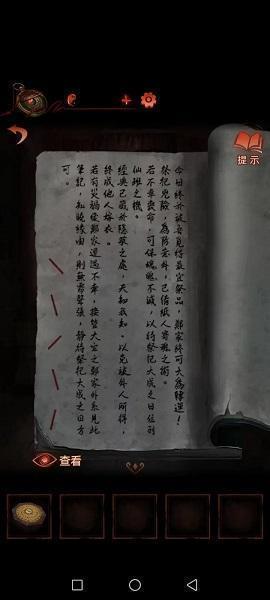 提示
今日終於被吾覓得最宜祭品，鄭家終可大為肆運！
祭祀兇險，為防意外，已備紙人寄魂之術。
若不幸喪命，可保魂魄不滅，以待祭祀大成之日位列
仙班之機。
經典已藏於隱蔽之處，天知我知。以免被外人所得，
終成他人嫁衣。
若有災禍使鄭家遭遇不幸，接替大宗之鄭家外系見此
筆記，知曉緣由，則無需聲張，靜待祭祀大成之日方
可。
查看